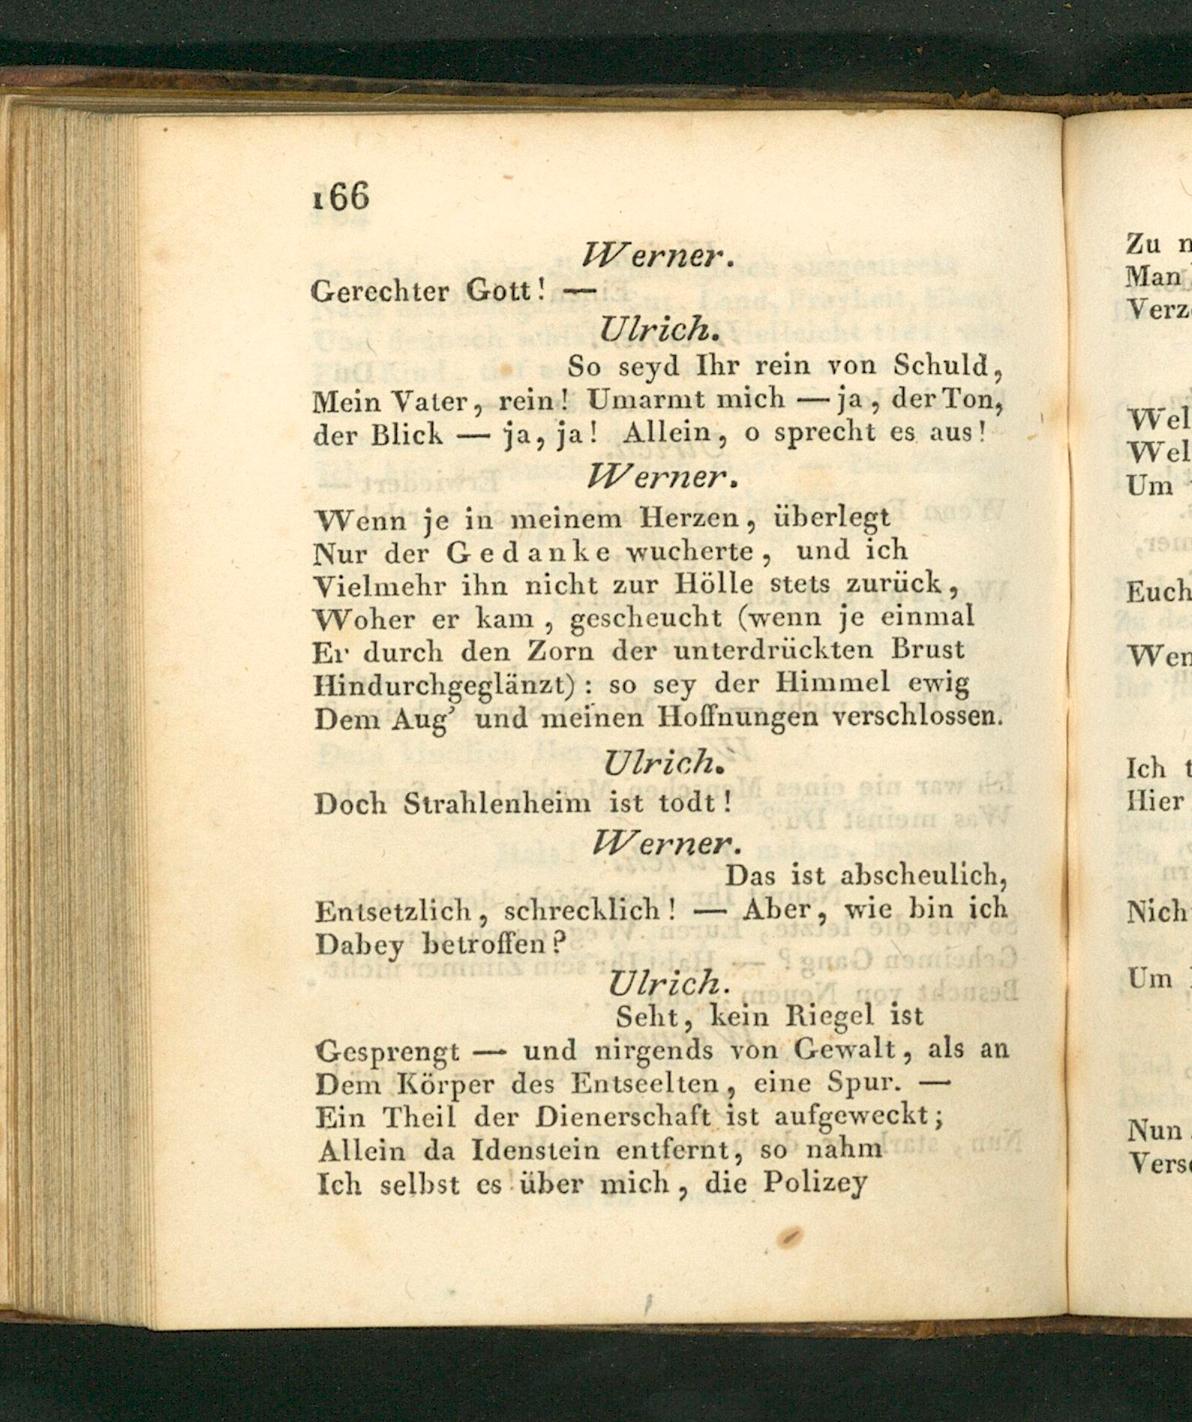 166
Werner.
Gerechter Gott! —
Ulrich.
So seyd Ihr rein von Schuld,
Mein Vater, rein! Umarmt mich — ja, der Ton,
der Blick — ja, ja! Allein, o sprecht es aus!
Werner.
Wenn je in meinem Herzen, überlegt
Nur der Gedanke wucherte, und ich
Vielmehr ihn nicht zur Hölle stets zurück,
Woher er kam, gescheucht (wenn je einmal
Er durch den Zorn der unterdrückten Brust
Hindurchgeglänzt): so sey der Himmel ewig
Dem Aug' und meinen Hoffnungen verschlossen.
Ulrich.
Doch Strahlenheim ist todt!
Werner.
Das ist abscheulich,
Entsetzlich, schrecklich! — Aber, wie bin ich
Dabey betroffen?
Ulrich.
Seht, kein Riegel ist
Gesprengt — und nirgends von Gewalt, als an
Dem Körper des Entseelten, eine Spur. —
Ein Theil der Dienerschaft ist aufgeweckt;
Allein da Idenstein entfernt, so nahm
Ich selbst es über mich, die Polizey
Zu
Man
Um
Euch
Ich
Hier
Um
Nun